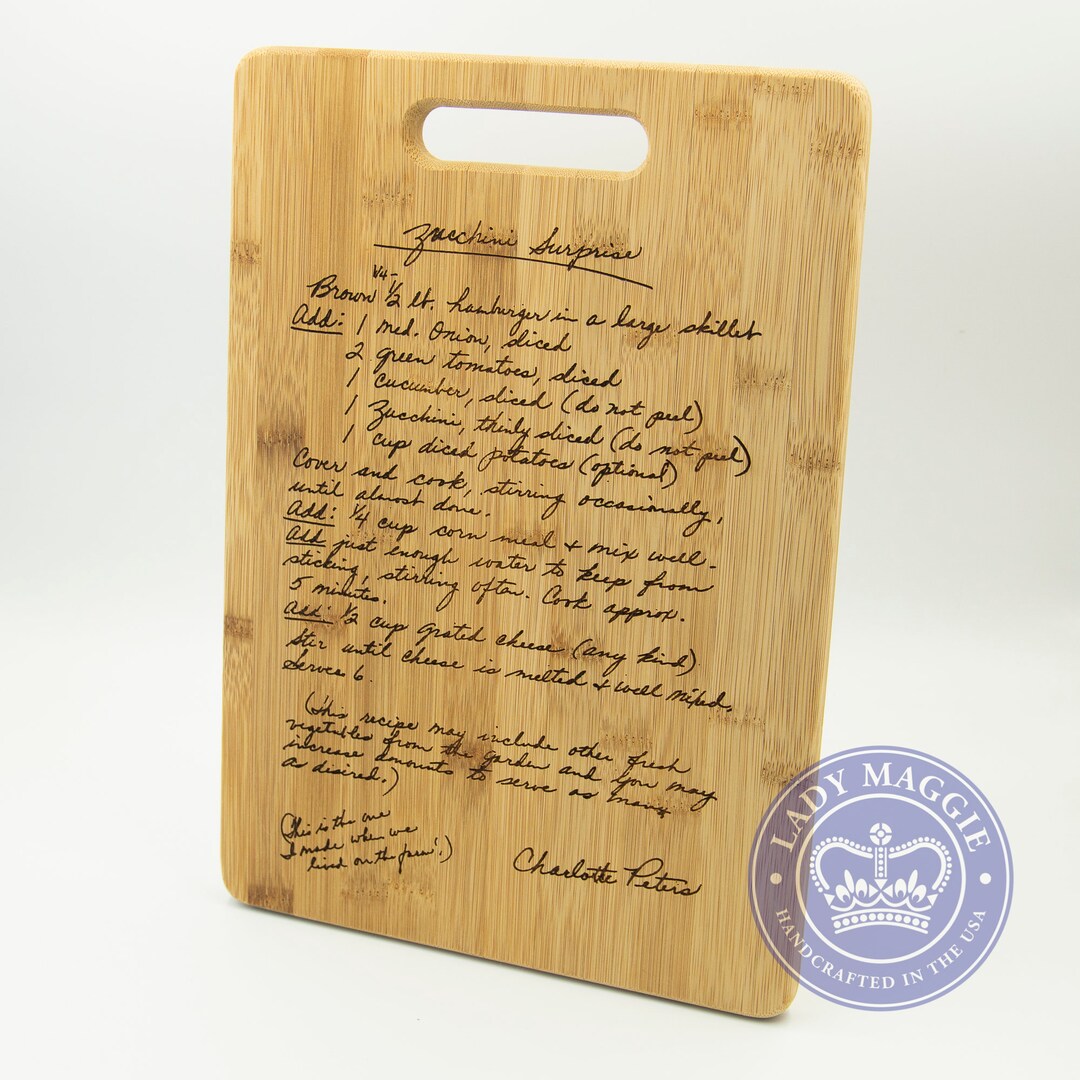 Zucchini Surprise
1/4-
Brown 1/2 lb. hamburger in a large skillet
Add: 1 med. Onion, sliced
2 green tomatoes, sliced
1 cucumber, sliced (do not peel)
1 Zucchini, thinly sliced (do not peel)
1 cup diced potatoes (optional)
Cover and cook, stirring occasionally,
until almost done.
Add: 1/4 cup corn meal & mix well.
Add just enough water to keep from
sticking, stirring often. Cook approx.
5 minutes.
Add: 1/2 cup grated cheese (any kind)
Stir until cheese is melted & well mixed.
Serves 6.
(This recipe may include other fresh
vegetables from the garden and you may
increase amounts to serve as many
as desired.)
(This is the one
I made when we
lived on the farm!)
Charlotte Peters
LADY MAGGIE
HANDCRAFTED IN THE USA